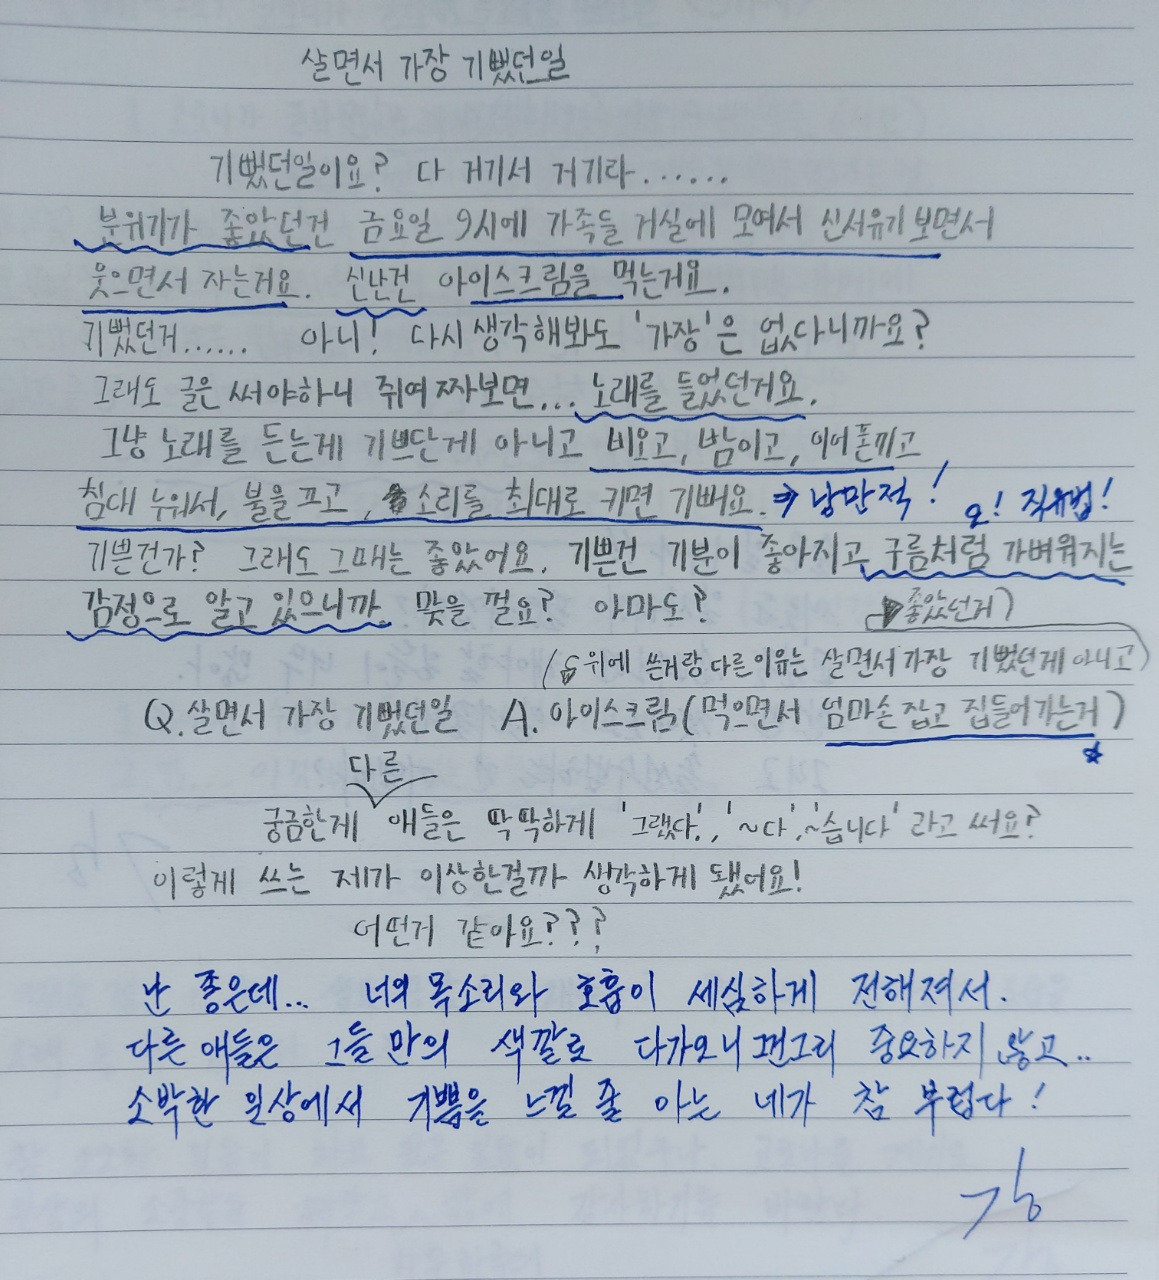 살면서 가장 기뻤던일
기뻤던일이요? 다 거기서 거기라......
분위기가 좋았던건 금요일 9시에 가족들 거실에 모여서 신서유기 보면서
웃으면서 자는거요. 신난건 아이스크림을 먹는거요.
기뻤던거...... 아니! 다시 생각해봐도 '가장'은 없다니까요?
그래도 글은 써야하니 쥐여 짜보면... 노래를 들었던거요.
그냥 노래를 든는게 기쁘단게 아니고 비오고, 밤이고, 이어폰끼고
침대 누워서, 불을 끄고, 소리를 최대로 키면 기뻐요. → 낭만적! 오! 직유법!
기쁜건가? 그래도 그때는 좋았어요. 기쁜건 기분이 좋아지고 구름처럼 가벼워지는
감정으로 알고 있으니까. 맞을 껄요? 아마도?
좋았던거)
(위에 쓴거랑 다른이유는 살면서 가장 기뻤던게 아니고
Q. 살면서 가장 기뻤던일 A. 아이스크림(먹으면서 엄마손 잡고 집들어가는거)
다른
궁금한게 애들은 딱딱하게 '그랬다.', '~다', '~습니다' 라고 써요?
이렇게 쓰는 제가 이상한걸까 생각하게 됐어요!
어떤거 같아요???
난 좋은데... 너의 목소리와 호흡이 세심하게 전해져서.
다른 애들은 그들만의 색깔로 다가오니깐 그리 중요하지 않고..
소박한 일상에서 기쁨을 느낄 줄 아는 네가 참 부럽다!
강